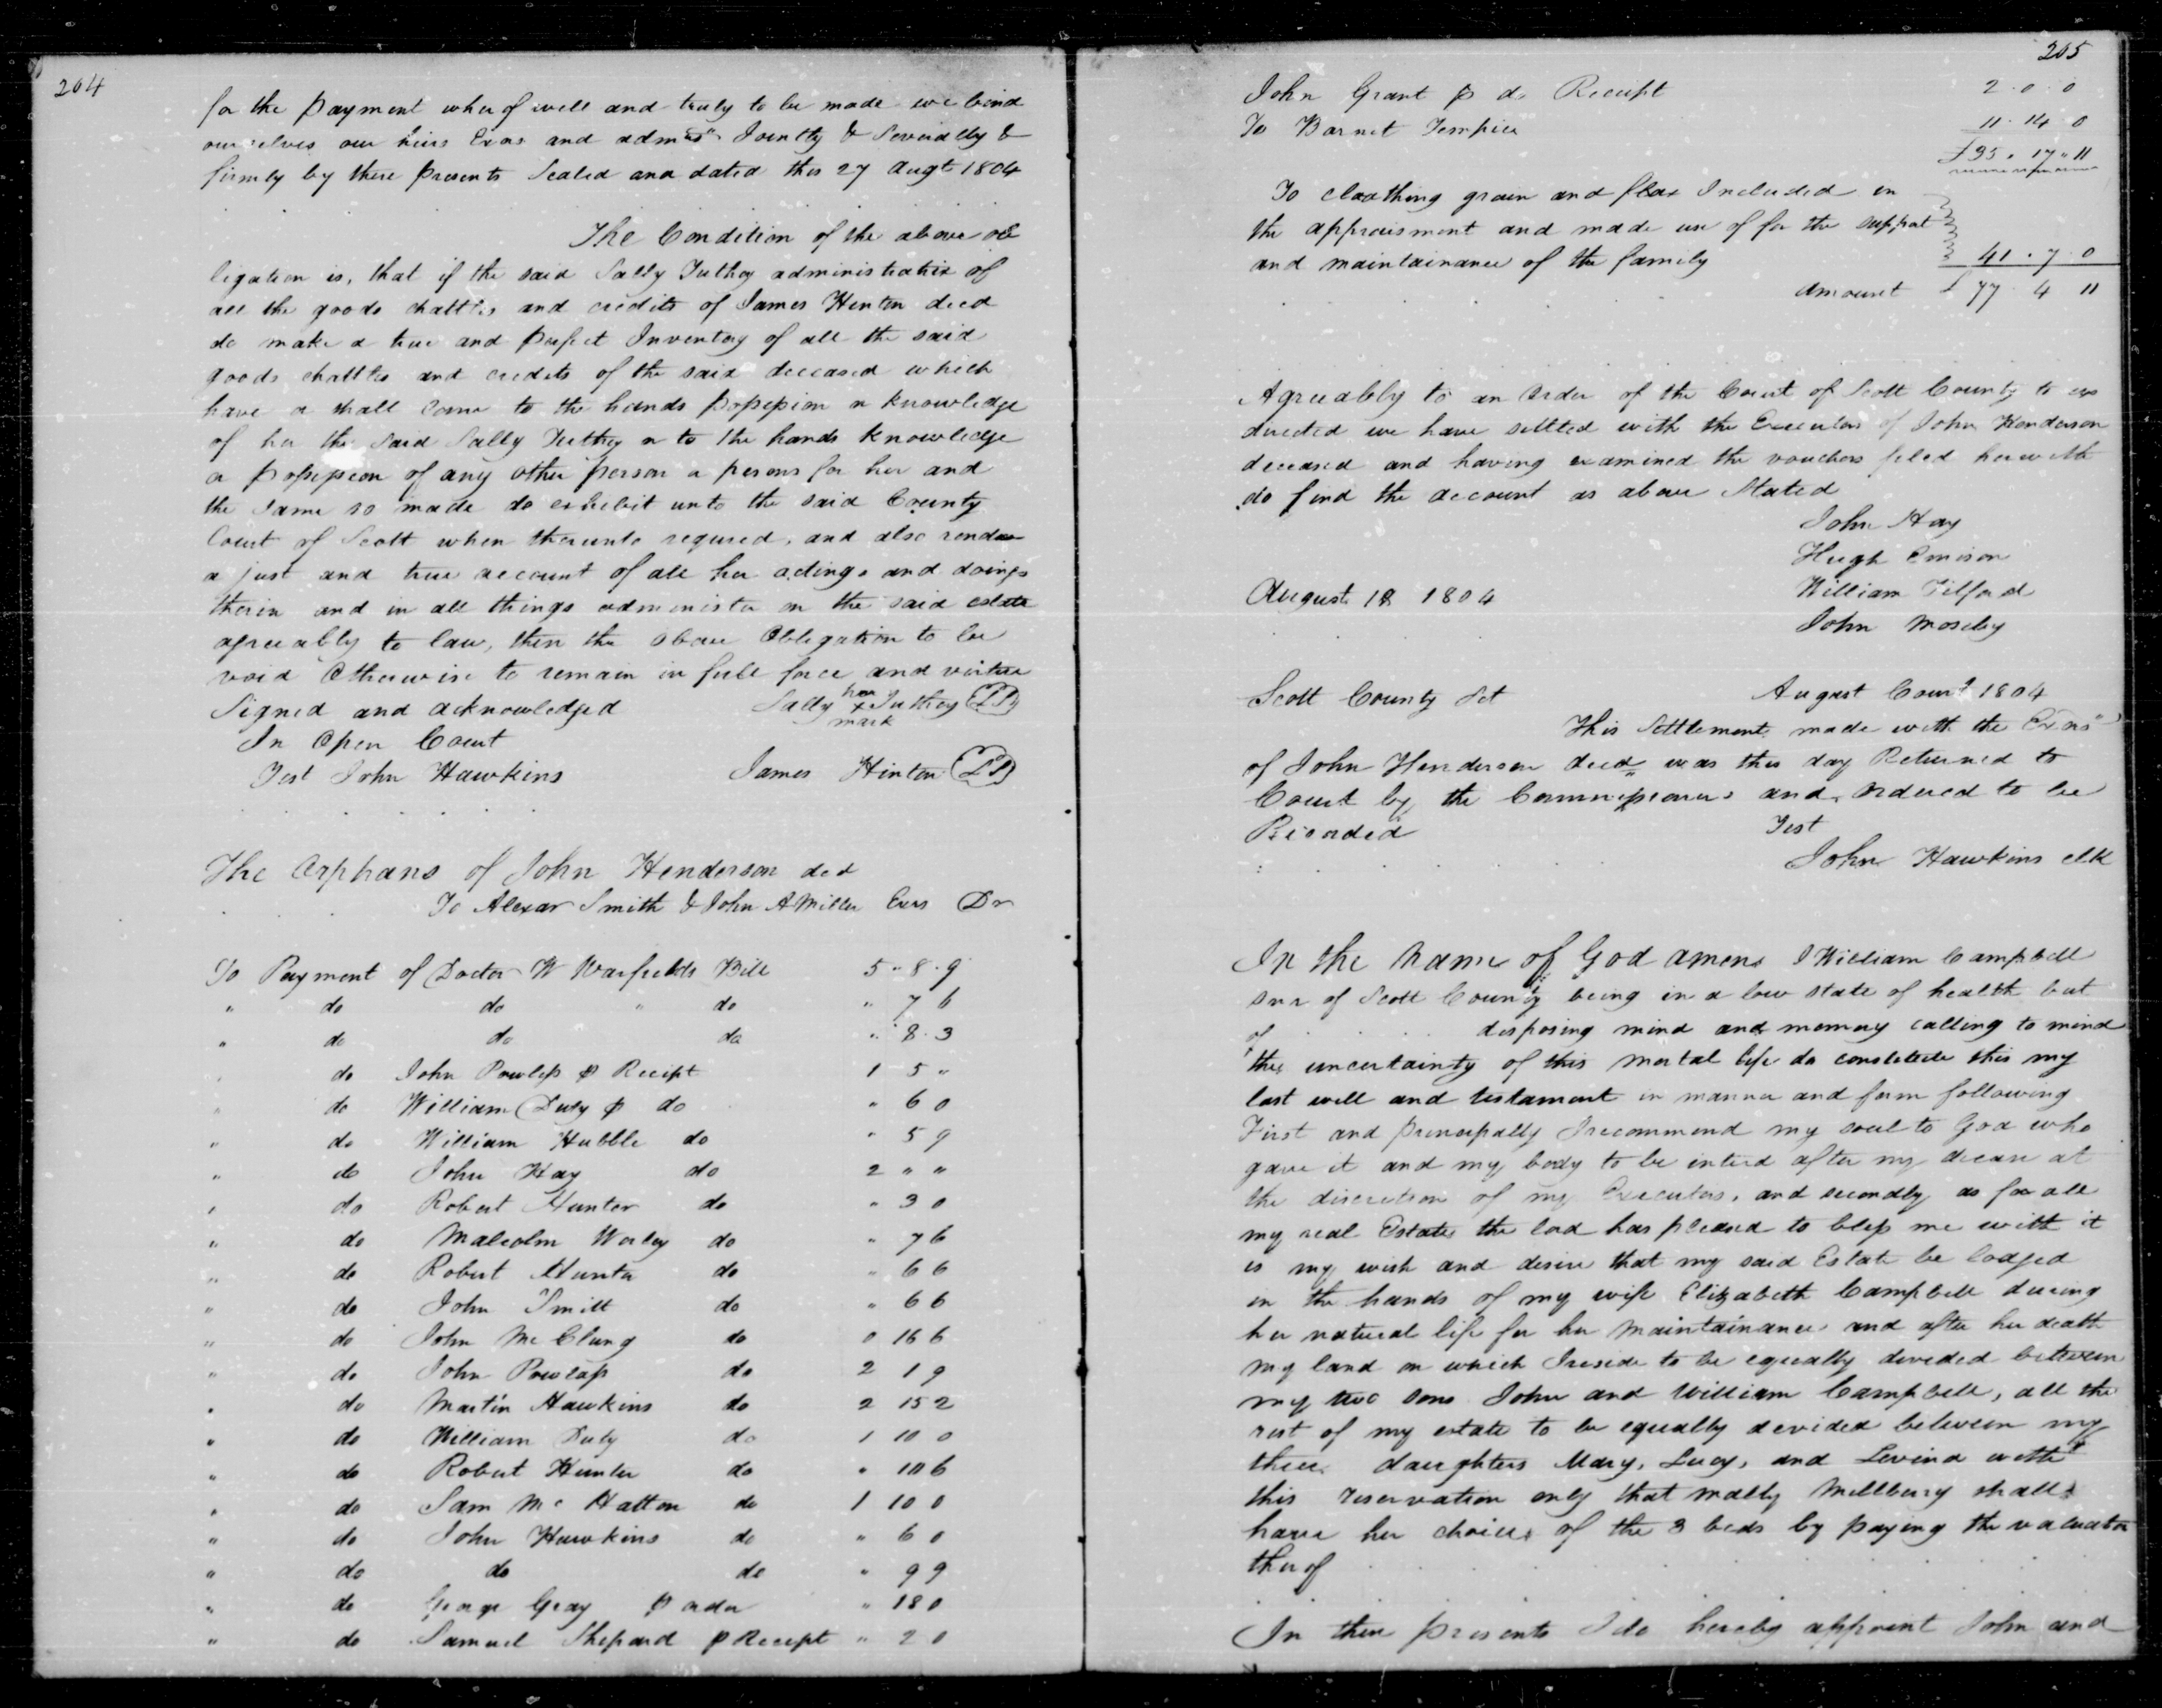 204
for the payment wherof well and truly to be made we bind
ourselves our heirs Exors and admrs Jointly & Severally &
firmly by these presents Sealed and dated this 27 Augt 1804
The Condition of the above ob
ligation is, that if the said Sally Tuthoy administratrix of
all the goods chattles and credits of James Hinton decd
do make a true and perfect Inventory of all the said
goods chattles and credits of the said deceased which
have or shall come to the hands possession or knowledge
of her the said Sally Tuthoy or to the hands knowledge
or possession of any other person or persons for her and
the same so made do exhibit unto the said County
Court of Scott when thereunto requred, and also render
a just and true account of all her actings and doings
therin and in all things administer on the said estate
agreeably to law, then the above Obligation to be
void Otherwise to remain in full force and virtue
Signed and acknowledged Sally her x mark Tuthoy LS
In Open Court
Test John Hawkins James Hinton LS
The Orphans of John Henderson decd
To Alexar Smith & John A Miller Exrs Dr
To Payment of Doctor W Warfields Bill 5 " 8 . 9
" do do " do " 7 6
" do do do " 8 . 3
do John Powless p Receipt 1 5 "
" do William Duty p do " 6 0
" do William Hubble do " 5 9
" do John Hay do 2 " "
" do Robert Hunter do " 3 0
" do Malcolm Worley do " 7 6
" do Robert Hunter do " 6 6
" do John Smith do " 6 6
" do John Mc Clung do 0 16 6
" do John Powlass do 2 1 9
" do Martin Hawkins do 2 15 2
" do William Duty do 1 10 0
" do Robert Hunter do " 10 6
" do Sam Mc Hatton do 1 10 0
" do John Hawkins do " 6 0
" do do do " 9 9
" do George Gray p order " 18 0
" do Samuel Shepard p Receipt " 2 0
205
John Grant p do Receipt 2 . 0 . 0
To Barnet 11 . 14 . 0
£35 . 17 " 11
To cloathing grain and flax Included in
the appraisment and made use of for the support
and maintainance of the family 41 . 7 . 0
Amount £ 77 . 4 11
Agreeably to an Order of the Court of Scott County to us
directed we have settled with the Executors of John Henderson
deceased and having examined the vouchers filed herewith
do find the account as above Stated
John Hay
Hugh Emison
August 18 1804 William Tilford
John Moseby
Scott County Sct August Court 1804
This Settlement made with the Exors
of John Henderson decd was this day Returned to
Court by the Commissioners and ordered to be
Recorded Test
John Hawkins clk
In the Name of God amen I William Campbell
Snr of Scott County being in a low state of health but
of disposing mind and memory calling to mind
the uncertainty of this mortal life do constitute this my
last will and testament in manner and form following
First and principally I recommend my soul to God who
gave it and my body to be interd after my decease at
the discretion of my Executors, and secondly as for all
my real Estate the lord has pleased to bless me with it
is my wish and desire that my said Estate be lodged
in the hands of my wife Elizabeth Campbell during
her natural life for her maintainance and after her death
my land on which I reside to be equally devided between
my two sons John and William Campbell, all the
rest of my estate to be equally devided between my
three daughters Mary, Lucy, and Levina with
this reservation only that Mally Millberry shall
have her choice of the 3 beds by paying the valuation
therof
In these presents I do hereby appoint John and